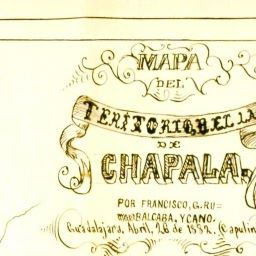 MAPA
DEL
TERITORIO,DE LA
DE
CHAPALA.
POR FRANCISCO, G. RU=
BALCABA, Y CANO.
Guadalajara, Abril, 26 de 1852. (Capulin